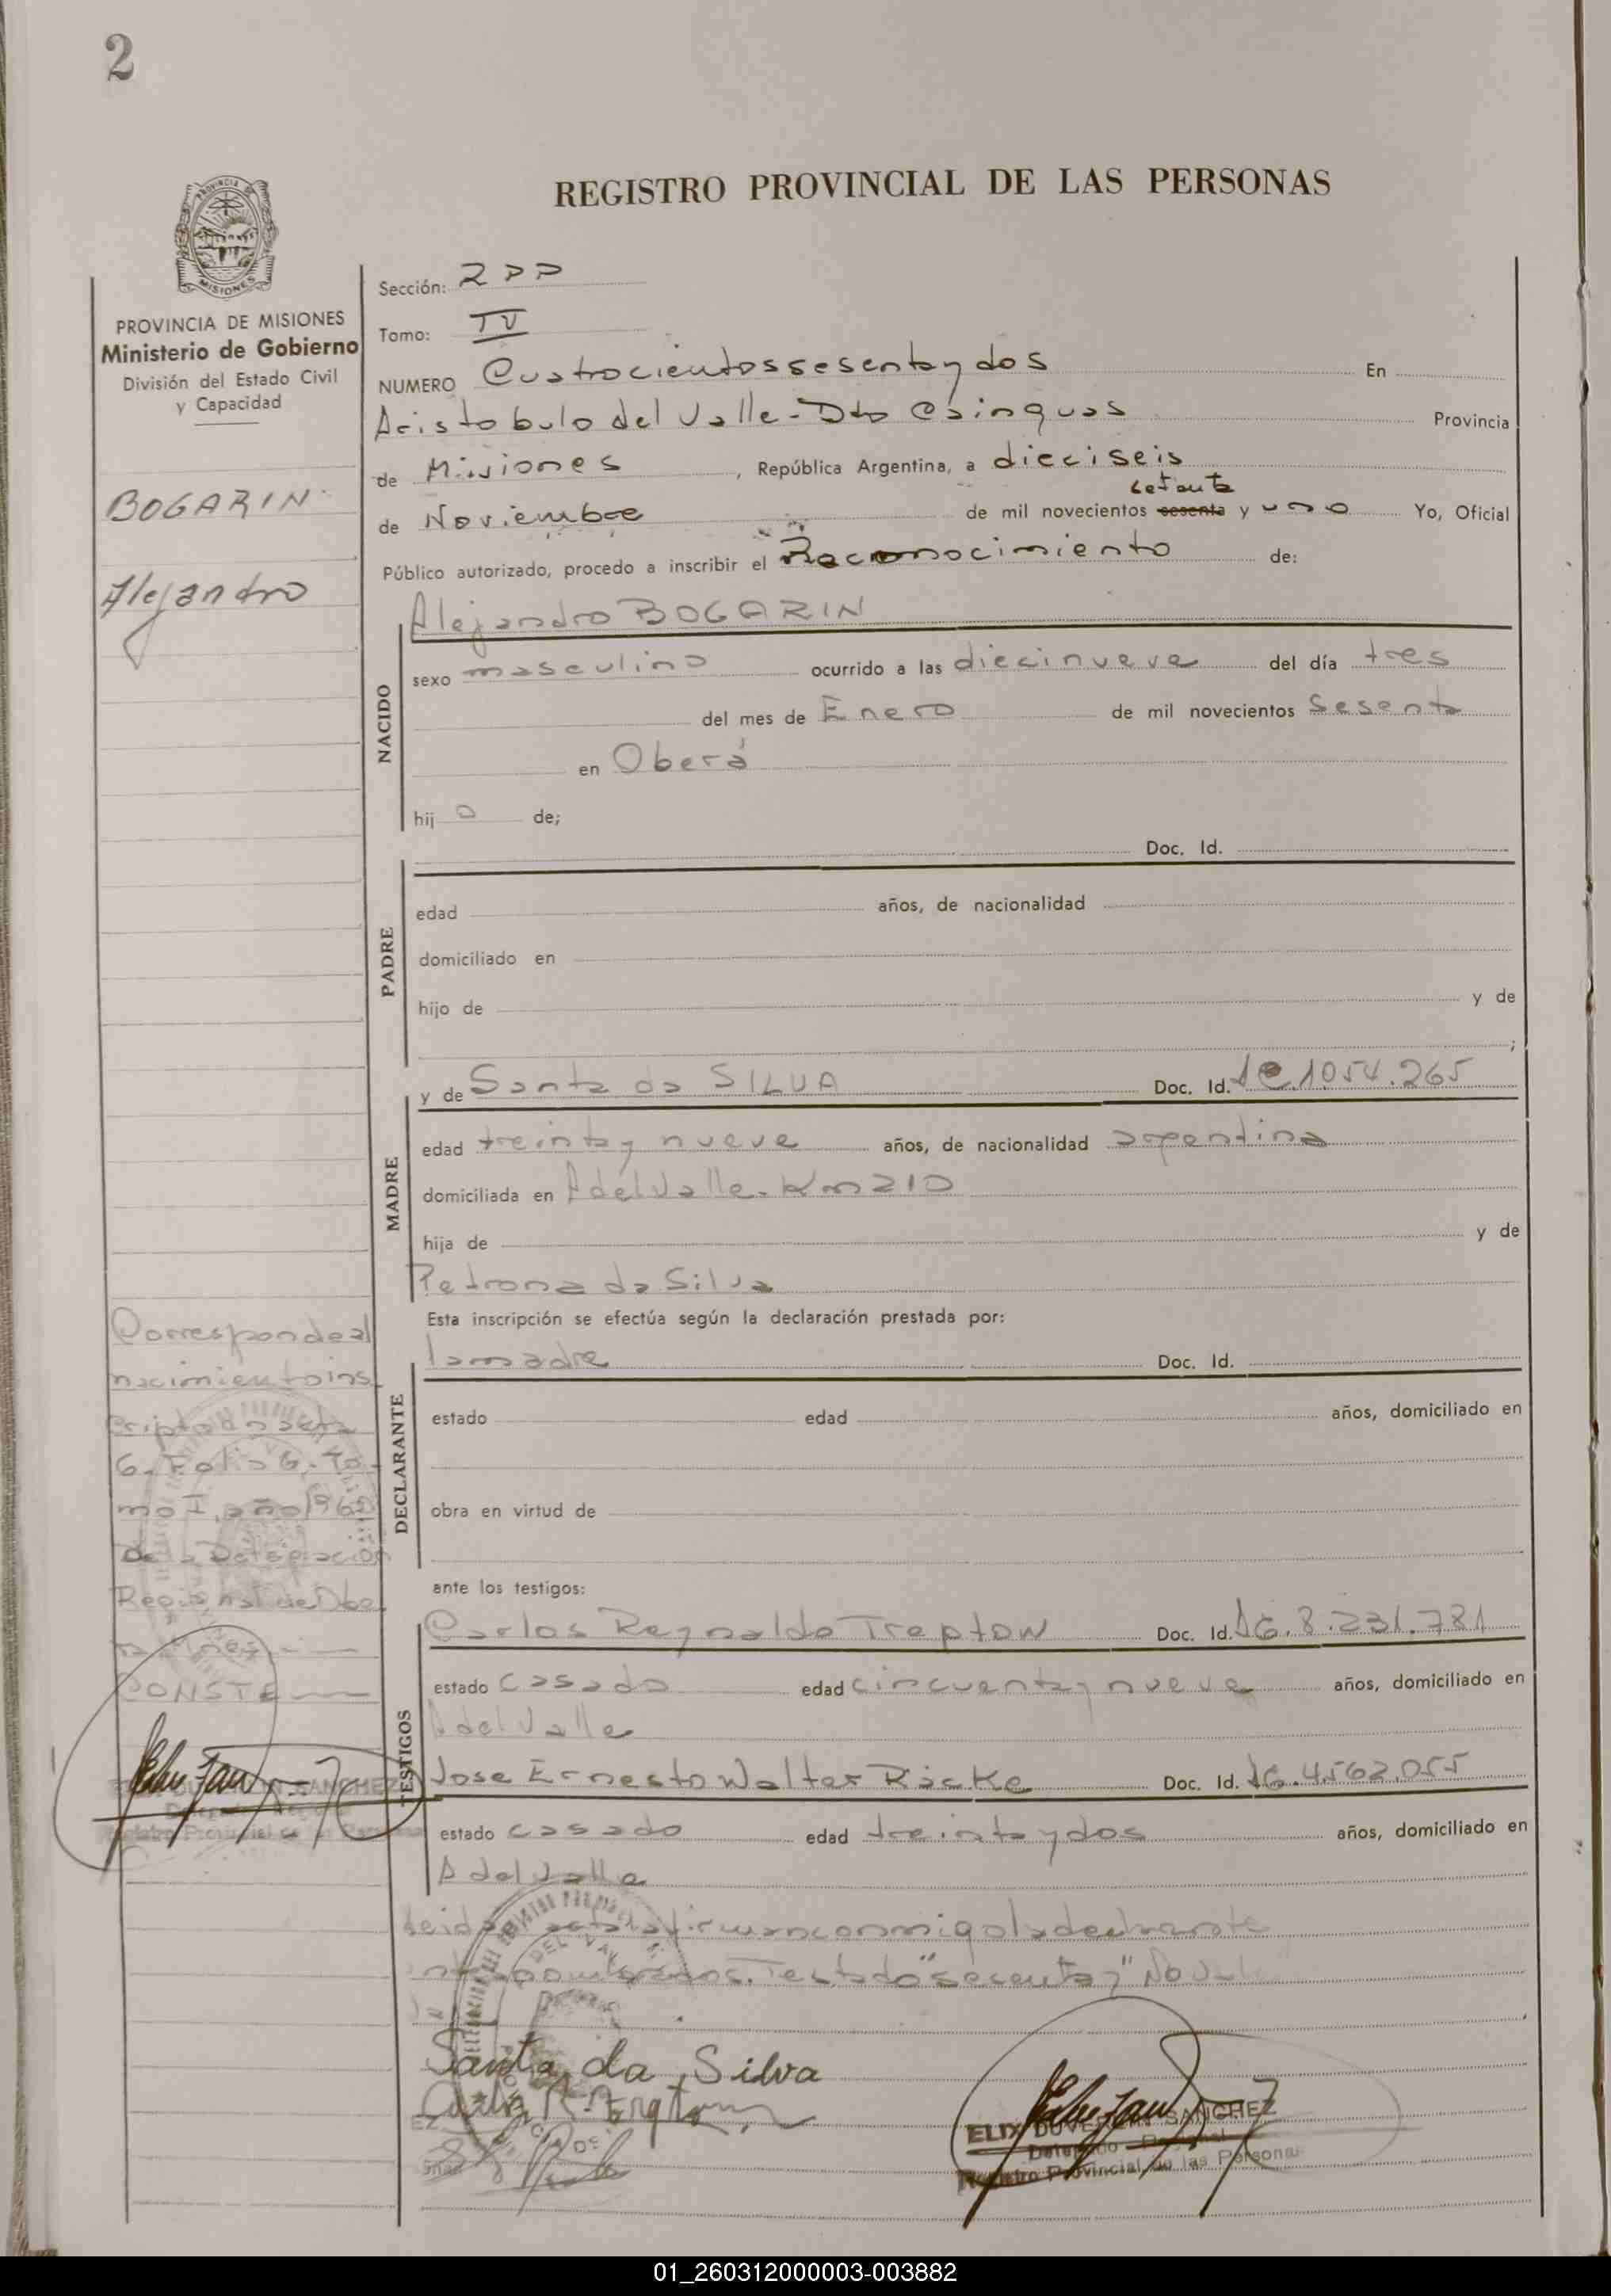 2
REGISTRO PROVINCIAL DE LAS PERSONAS
PROVINCIA DE MISIONES
Ministerio de Gobierno
División del Estado Civil
y Capacidad
BOGARIN
Alejandro
Sección: 2 DD
Tomo: IV
NUMERO Cuatrocientos sesenta y dos En
Aristobulo del Valle - Dto Cainguas Provincia
de Misiones, República Argentina, a dieciseis
setenta
de Noviembre de mil novecientos sesenta y uno Yo, Oficial
Público autorizado, procedo a inscribir el Reconocimiento de:
NACIDO
Alejandro BOGARIN
sexo masculino ocurrido a las diecinueve del día tres
del mes de Enero de mil novecientos Sesenta
en Oberá
hijo de;
PADRE
Doc. Id.
edad años, de nacionalidad
domiciliado en
hijo de y de
;
MADRE
y de Santa da SILVA Doc. Id. 1.054.265
edad treinta y nueve años, de nacionalidad argentina
domiciliada en A del Valle - Km 210
hija de y de
Petrona da Silva
Esta inscripción se efectúa según la declaración prestada por:
DECLARANTE
la madre Doc. Id.
estado edad años, domiciliado en
obra en virtud de
ante los testigos:
TESTIGOS
Carlos Reynaldo Treptow Doc. Id. 8.231.781
estado casado edad cincuenta y nueve años, domiciliado en
A del Valle
Jose Ernesto Walter Ricke Doc. Id. 4.562.055
estado casado edad treinta y dos años, domiciliado en
A del Valle
Leida acta la firman conmigo la declarante
Testado "sesenta y" No vale
Corresponde al
nacimiento ins
cripto en acta
6. Folio 6. To-
mo I, año 1960
De la Delegación
Regional de Obe
ra, Mnes.
CONSTE
SANCHEZ
Registro Provincial de las Personas
Santa da Silva
ELIX DUVERLIN SANCHEZ
Delegado Regional
Registro Provincial de las Personas
01_260312000003-003882